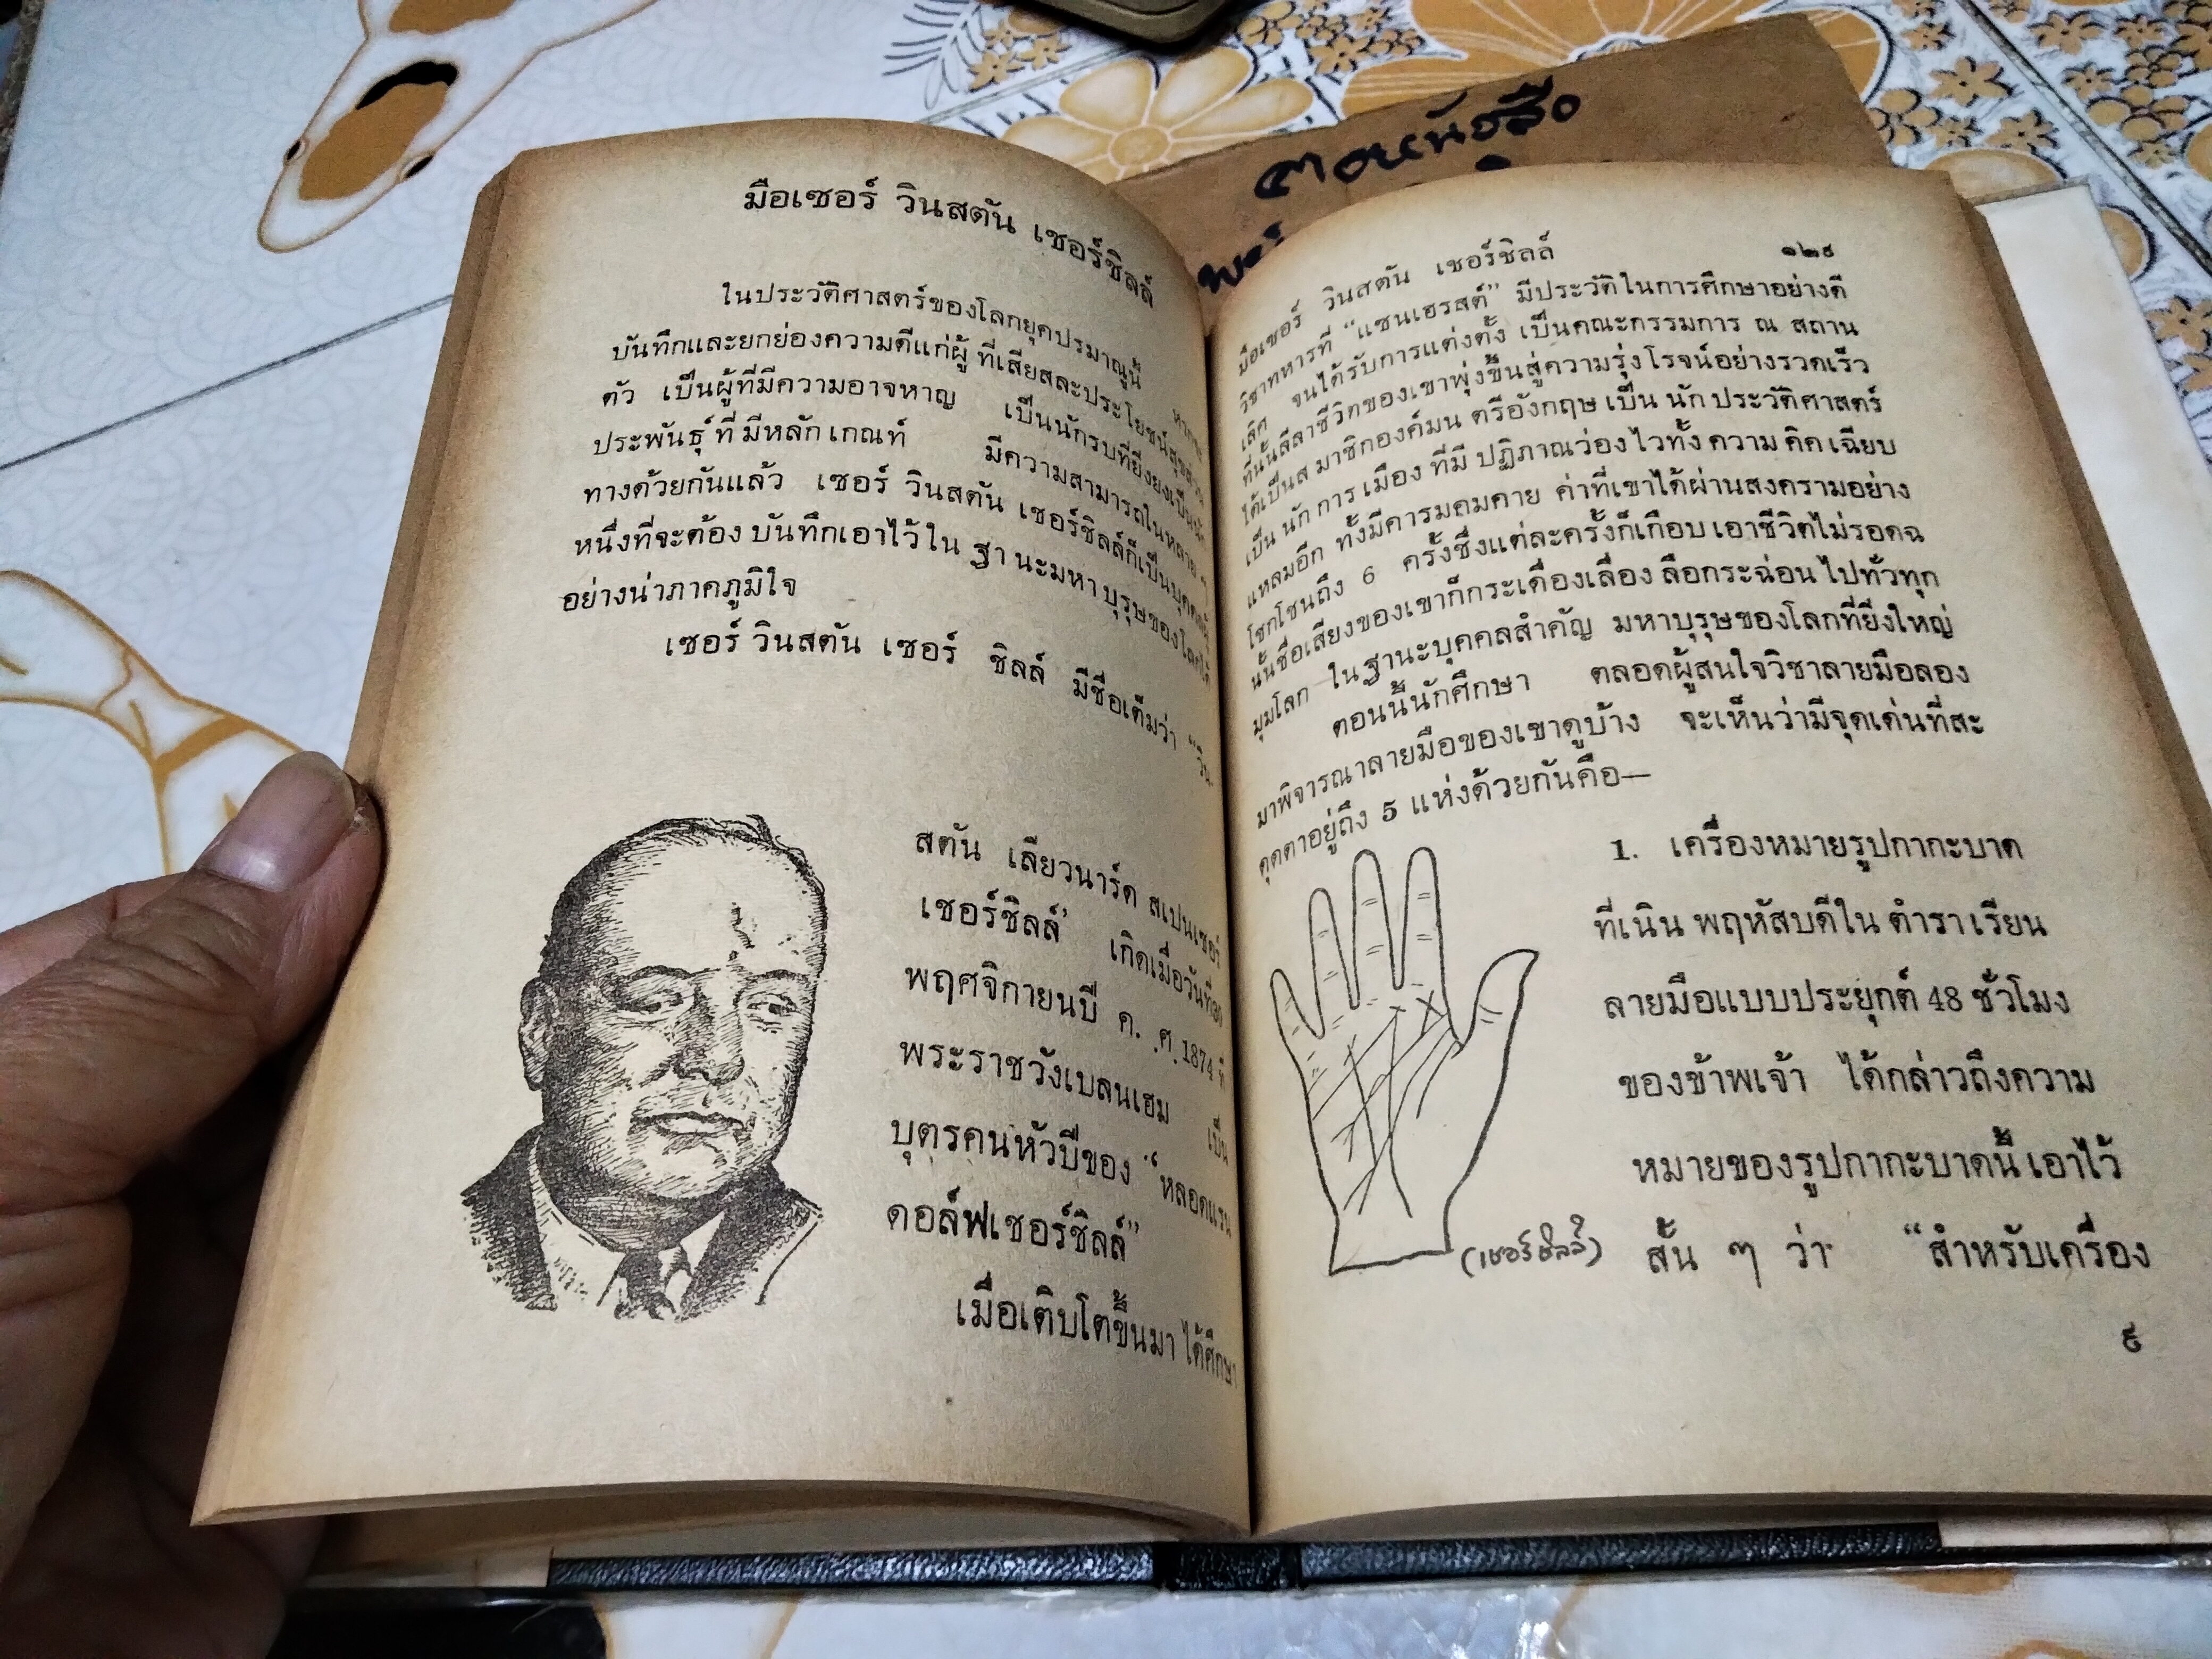 มือเซอร์ วินสตัน เชอร์ชิลล์
ในประวัติศาสตร์ของโลกยุคปรมาณูนี้ หากจะ
บันทึกและยกย่องความดีแก่ผู้ ที่เสียสละประโยชน์สุขส่วน
ตัว เป็นผู้ที่มีความอาจหาญ เป็นนักรบที่ยิ่งยงเป็นนัก
ประพันธุ์ ที่ มีหลัก เกณท์ มีความสามารถในหลาย ๆ
ทางด้วยกันแล้ว เซอร์ วินสตัน เชอร์ชิลล์ก็เป็นบุคคลผู้
หนึ่งที่จะต้อง บันทึกเอาไว้ ใน ฐา นะมหา บุรุษของโลกได้
อย่างน่าภาคภูมิใจ
เซอร์ วินสตัน เชอร์ ชิลล์ มีชื่อเต็มว่า “วิน
สตัน เลียวนาร์ด สเปนเซอร์
เชอร์ชิลล์’ เกิดเมื่อวันที่30
พฤศจิกายนปี ค. ศ. 1874 ที่
พระราชวังเบลนเฮม เป็น
บุตรคนหัวปีของ “หลอดแรน
ดอล์ฟเชอร์ชิลล์”
เมื่อเติบโตขึ้นมา ได้ศึกษา
ตอนหนังสือ
มือเซอร์ วินสตัน เชอร์ชิลล์ ๑๒๙
วิชาทหารที่ “แซนเฮรสต์” มีประวัติในการศึกษาอย่างดี
เลิศ จนได้รับการแต่งตั้ง เป็นคณะกรรมการ ณ สถาน
ที่นั้นลีลาชีวิทของเขาพุ่งขึ้นสู่ความรุ่งโรจน์อย่างรวดเร็ว
ได้เป็นส มาชิกองค์มน ตรีอังกฤษ เป็น นัก ประวัติศาสตร์
เป็น นัก การ เมือง ที่มี ปฏิภาณว่อง ไวทั้ง ความ คิด เฉียบ
แหลมอีก ทั้งมีคารมคมคาย ค่าที่เขาได้ผ่านสงครามอย่าง
โชกโชนถึง 6 ครั้งซึ่งแต่ละครั้งก็เกือบ เอาชีวิตไม่รอดฉ
นั้นชื่อเสียงของเขาก็กระเดื่องเลื่อง ลือกระฉ่อน ไปทั่วทุก
มุมโลก ใน ฐานะบุคคลสำคัญ มหาบุรุษของโลกที่ยิ่งใหญ่
ตอนนี้นักศึกษา ตลอดผู้สนใจวิชาลายมือลอง
มาพิจารณาลายมือของเขาดูบ้าง จะเห็นว่ามีจุดเด่นที่สะ
ดุดตาอยู่ถึง 5 แห่งด้วยกันคือ—
1. เครื่องหมายรูปกากะบาด
ที่เนิน พฤหัสบดีใน ตำรา เรียน
ลายมือแบบประยุกต์ 48 ชั่วโมง
ของข้าพเจ้า ได้กล่าวถึงความ
หมายของรูปกากะบาดนี้ เอาไว้
(เชอร์ชิลล์) สั้น ๆ ว่า “สำหรับเครื่อง
๙